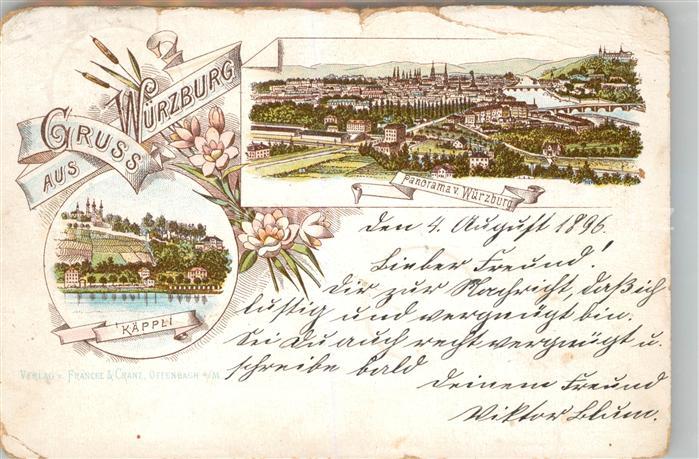 GRUSS
AUS
WÜRZBURG
Panorama v. Würzburg
KÄPPLI
VERLAG v. FRANCKE & CRANZ, OFFENBACH a/M.
den 4. August 1896.
Lieber Freund!
Dir zur Nachricht, daß ich
lustig und vergnügt bin.
Sei Du auch recht vergnügt u.
schreibe bald
Deinem Freund
Viktor Blum.